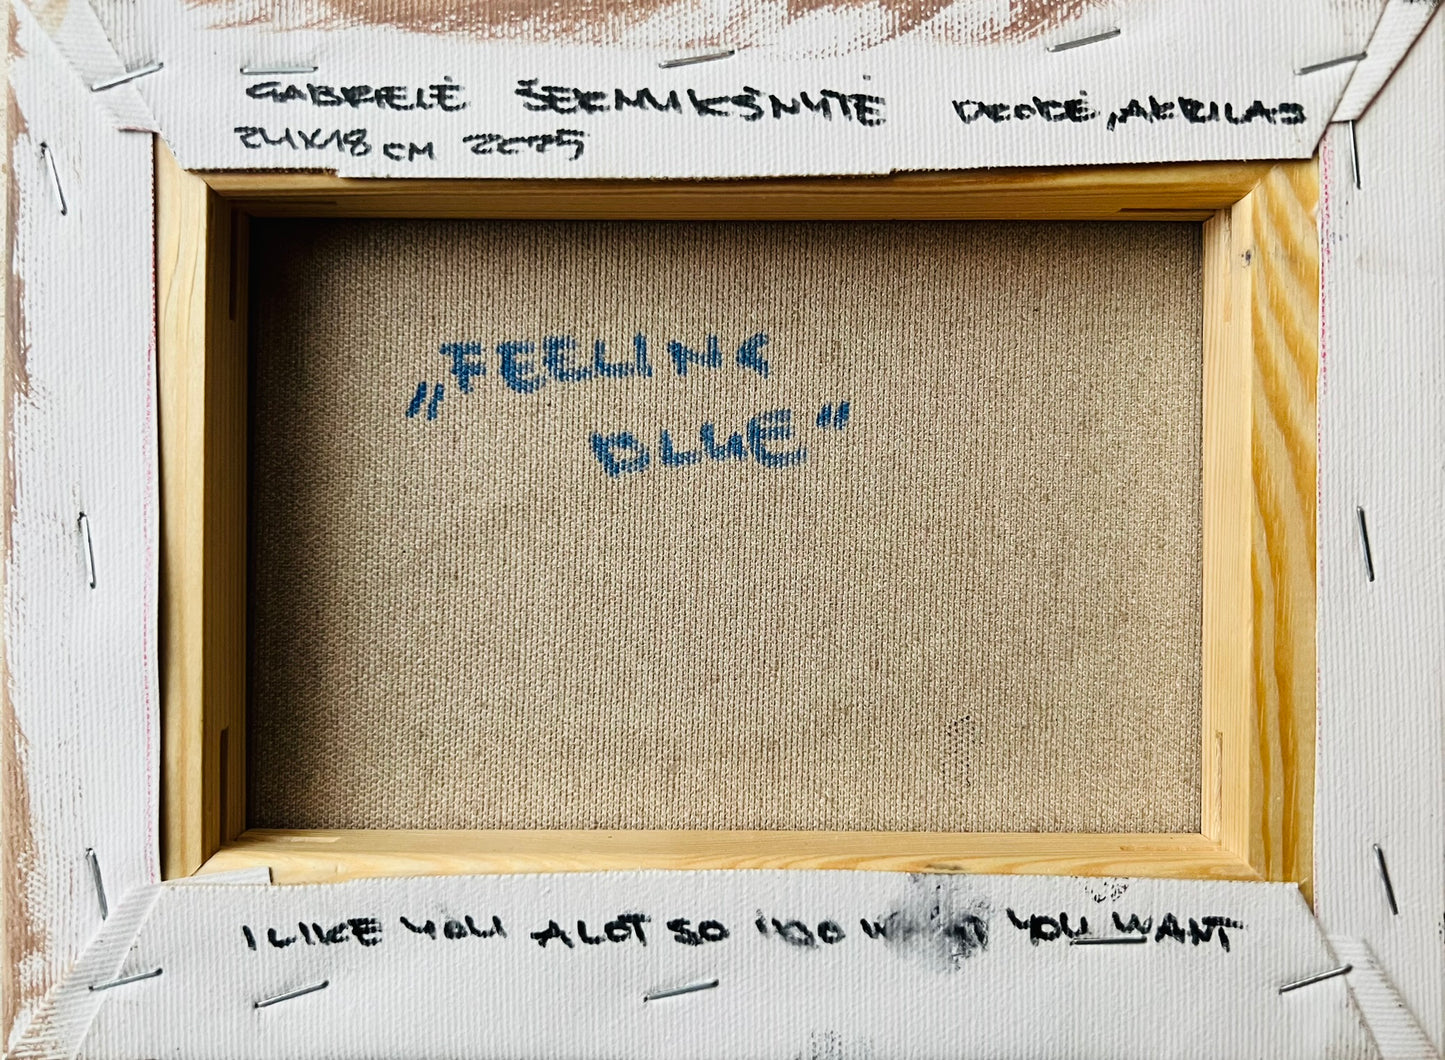 GABRIELĖ ŠERMUKŠNYTĖ DROBĖ, AKRILAS
24X18 CM
„FEELING
BLUE“
I LIKE YOU A LOT SO I'LL DO WHAT YOU WANT